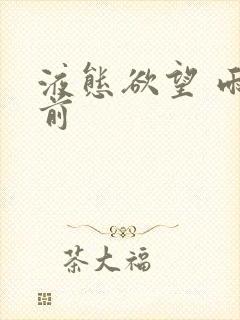 液態欲望
前
茶大福